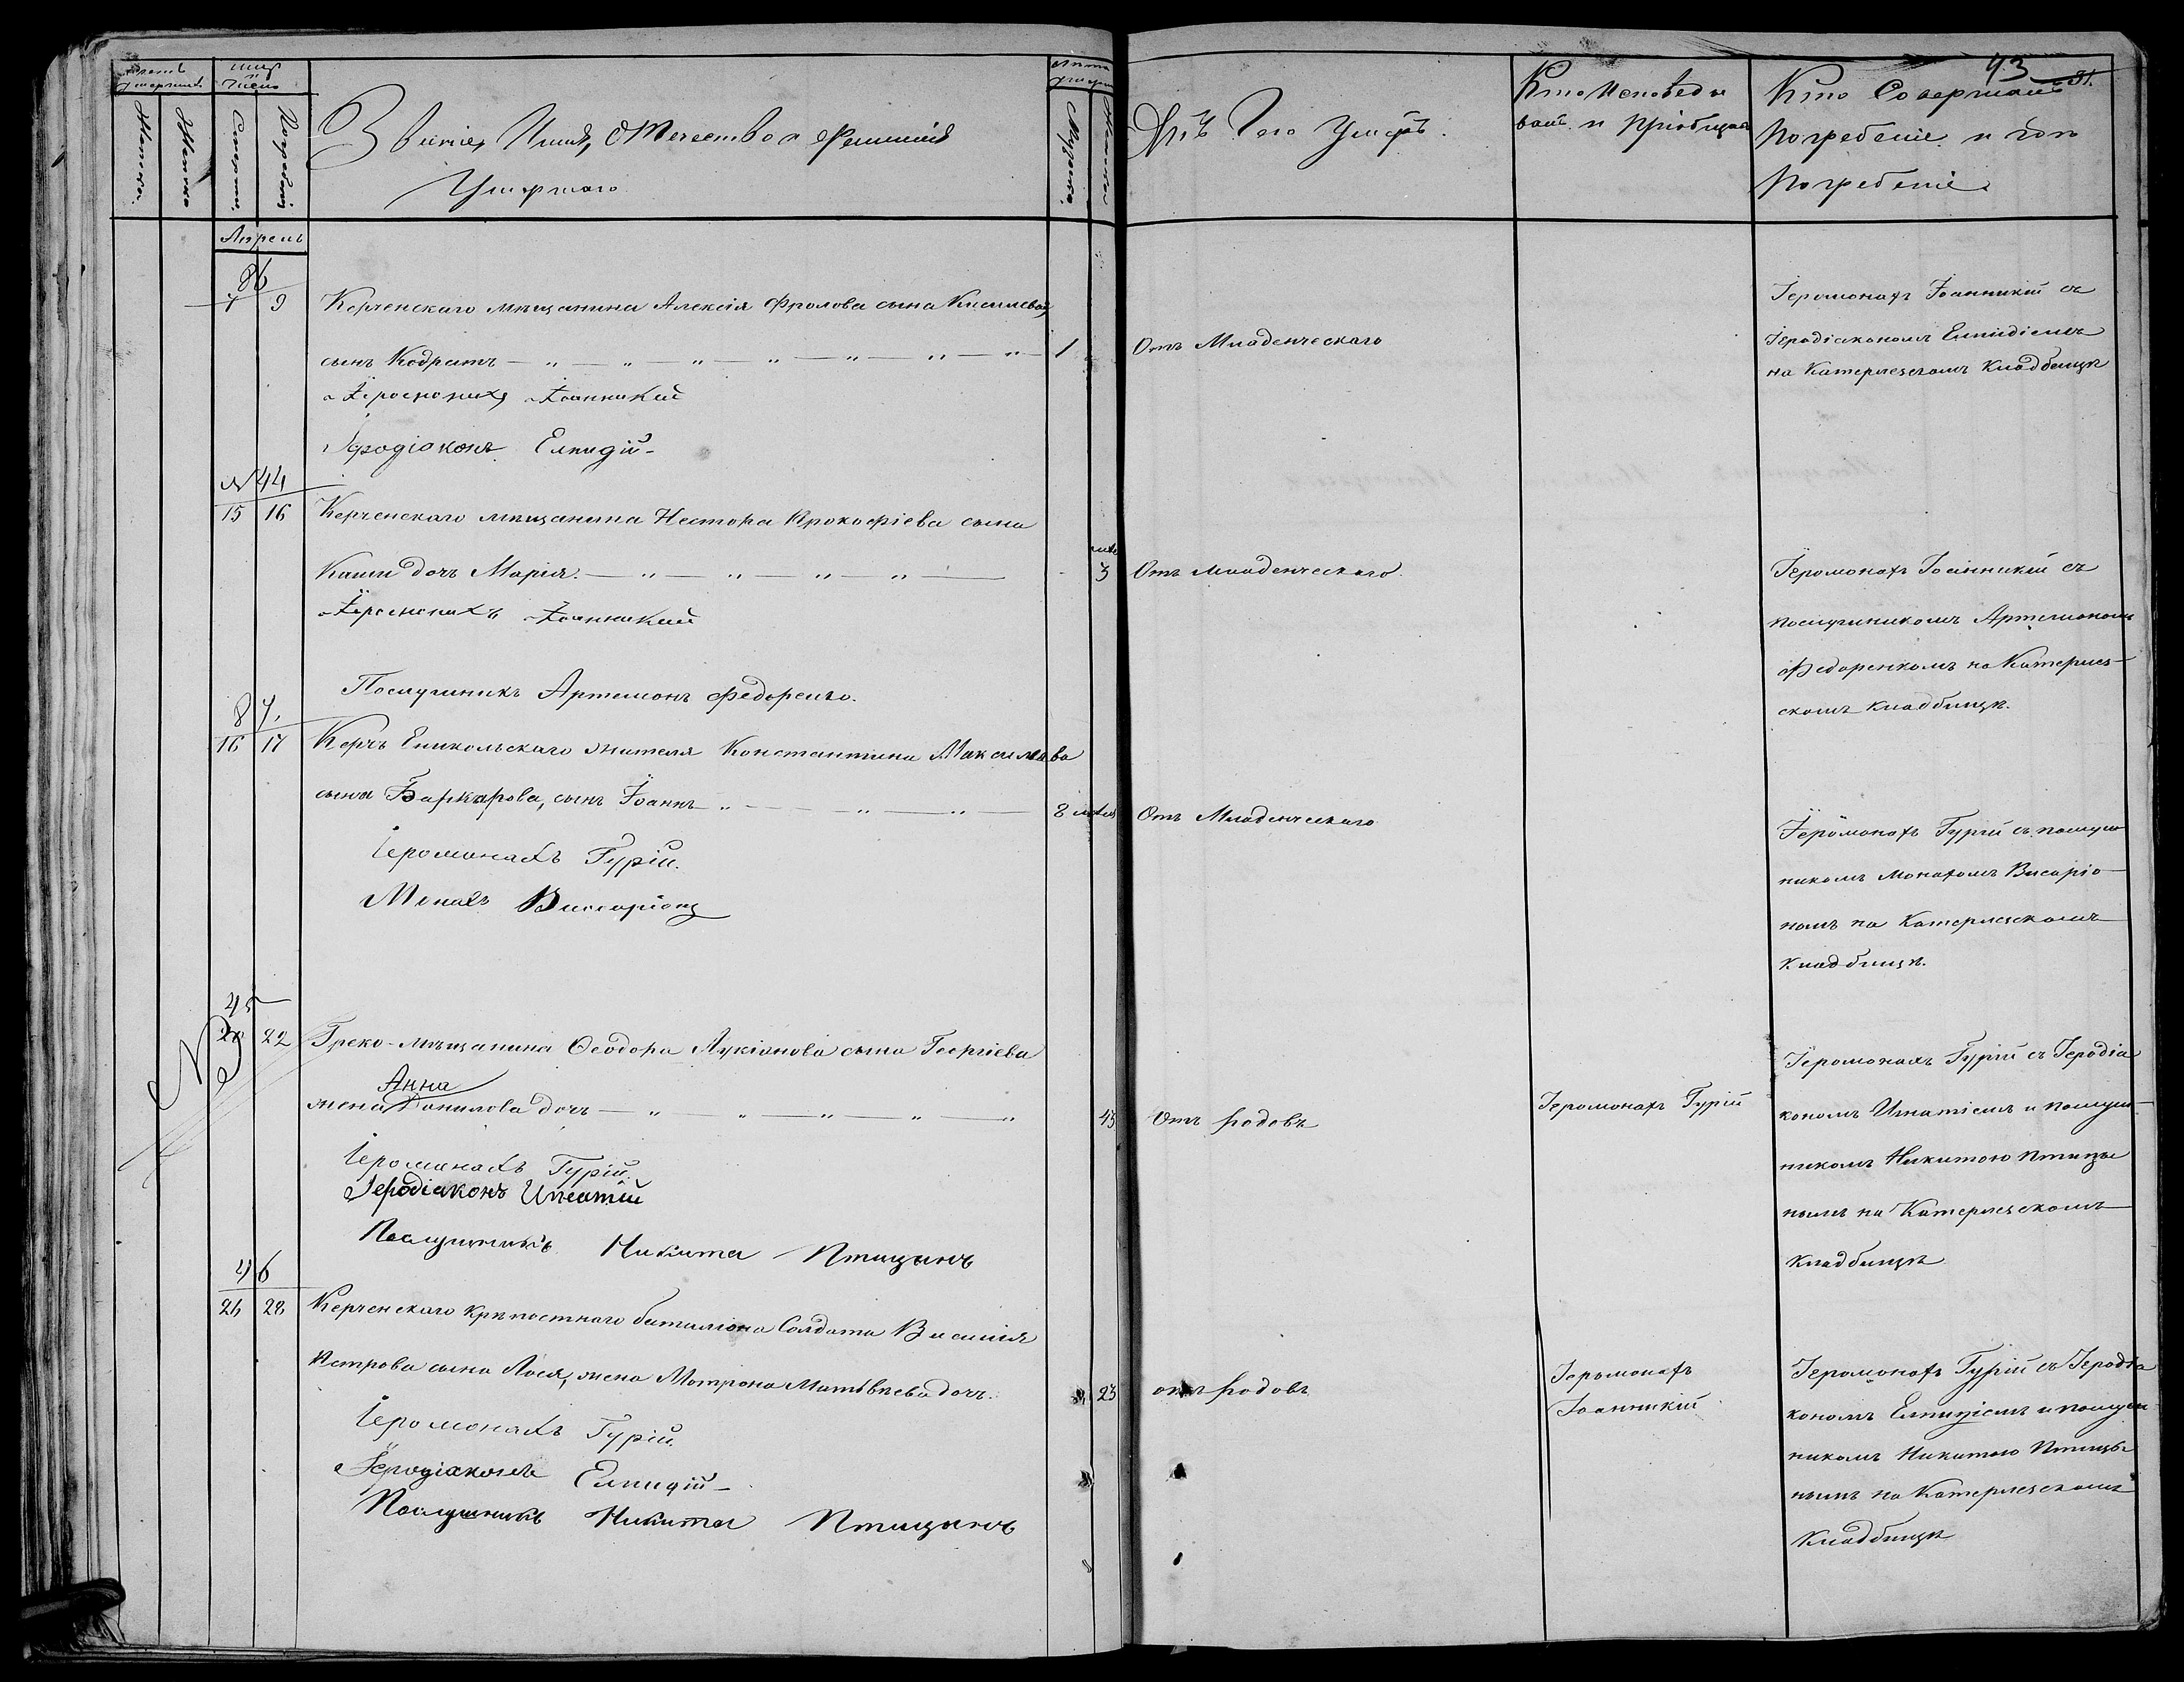 Счетъ умершихъ
Мѣс. и Число
Мужска.
Женска
Смерти.
Погребенія
Званіе, Имя, Отечество и Фамилія
Умершаго
Лѣта умерш
Мужеска.
Женска
Отъ Чего Умеръ.
Кто Исповеды
валъ и пріобщал
43
Кто Совершалъ
Погребеніе и гдѣ
Погребенъ
Апрель
86
7 9
Керченскаго мѣщанина Алексія Фролова сына Киселева,
сынъ Кодратъ — „ — „ — „ — „ — „ — „ — „ — 1
Іеромонахъ Іоанникій
Іеродіаконъ Елпидій
Отъ Младенческаго
Іеромонахъ Іоанникій съ
Іеродіакономъ Елпидіемъ
на Катерлезскомъ Кладбищѣ
№ 44
15 16
Керченскаго мѣщанина Нестора Прокофіева сына
Каши дочь Марія. — „ — „ — „ — „ — 3
Іеромонахъ Іоанникій
Послушникъ Артемонъ Федоренко.
Отъ младенческаго.
Іеромонахъ Іоанникій съ
послушникомъ Артемономъ
Федоренкомъ на Катерлез-
скомъ кладбищѣ.
87.
16 17
Керчь Еникольскаго жителя Константина Максимова
сына Баркарова, сынъ Іоаннъ „ — „ — „ — 8
Іеромонахъ Гурій.
Монахъ Виссаріонъ
Отъ Младенческаго
Іеромонахъ Гурій съ послуш
никомъ монахомъ Висаріо-
номъ на Катерлезскомъ
кладбищѣ.
№ 45
20 22
Греко-мѣщанина Ѳеодора Лукіанова сына Георгіева
Анна
жена Данилова дочь — „ — „ — „ — „ — „ 45
Іеромонахъ Гурій
Іеродіаконъ Игнатій
Послушникъ Никита Птицынъ
Отъ родовъ
Іеромонахъ Гурій
Іеромонахъ Гурій съ Іеродіа
кономъ Игнатіемъ и послуш-
никомъ Никитою Птицы
нымъ на Катерлезскомъ
кладбищѣ
46
26 28
Керченскаго крѣпостнаго баталіона Солдата Василія
Петрова сына Лося, жена Матрона Матвѣева дочь. 23
Іеромонахъ Гурій
Іеродіаконъ Елпидій
Послушникъ Никита Птицынъ
отъ родовъ
Іеромонахъ
Іоанникій
Іеромонахъ Гурій съ Іеродіа
кономъ Елпидіемъ и послуш
никомъ Никитою Птицы
нымъ на Катерлезскомъ
Кладбищѣ